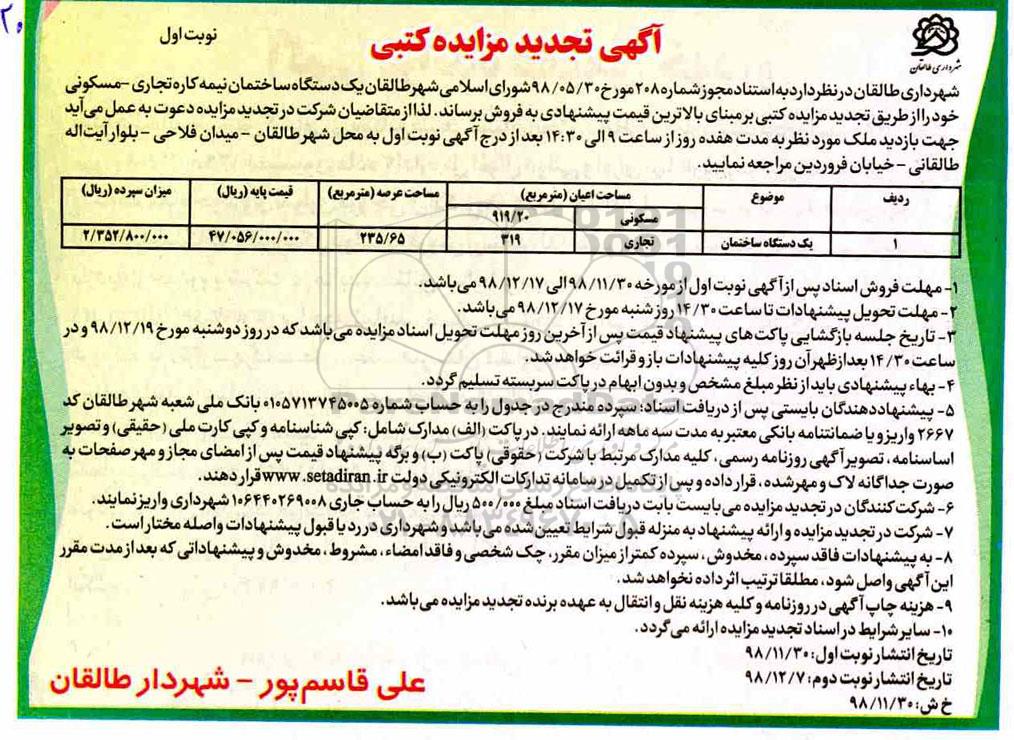 ۲۰
شهرداری طالقان
نوبت اول
آگهی تجدید مزایده کتبی
شهرداری طالقان در نظر دارد به استناد مجوز شماره ۲۰۸ مورخ ۹۸/۰۵/۳۰ شورای اسلامی شهر طالقان یک دستگاه ساختمان نیمه کاره تجاری -مسکونی
خود را از طریق تجدید مزایده کتبی بر مبنای بالاترین قیمت پیشنهادی به فروش برساند. لذا از متقاضیان شرکت در تجدید مزایده دعوت به عمل می‌آید
جهت بازدید ملک مورد نظر به مدت هفده روز از ساعت ۹ الی ۱۴:۳۰ بعد از درج آگهی نوبت اول به محل شهر طالقان - میدان فلاحی - بلوار آیت‌اله
طالقانی - خیابان فروردین مراجعه نمایید.
ردیف موضوع مساحت اعیان (مترمربع) مساحت عرصه (مترمربع) قیمت پایه (ریال) میزان سپرده (ریال)
مسکونی ۹۱۹/۲۰
۱ یک دستگاه ساختمان تجاری ۳۱۹ ۲۳۵/۶۵ ۴۷/۰۵۶/۰۰۰/۰۰۰ ۲/۳۵۲/۸۰۰/۰۰۰
۱- مهلت فروش اسناد پس از آگهی نوبت اول از مورخه ۹۸/۱۱/۳۰ الی ۹۸/۱۲/۱۷ می‌باشد.
۲- مهلت تحویل پیشنهادات تا ساعت ۱۴/۳۰ روز شنبه مورخ ۹۸/۱۲/۱۷ می‌باشد.
۳- تاریخ جلسه بازگشایی پاکت‌های پیشنهاد قیمت پس از آخرین روز مهلت تحویل اسناد مزایده می‌باشد که در روز دوشنبه مورخ ۹۸/۱۲/۱۹ و در
ساعت ۱۴/۳۰ بعدازظهر آن روز کلیه پیشنهادات باز و قرائت خواهد شد.
۴- بهاء پیشنهادی باید از نظر مبلغ مشخص و بدون ابهام در پاکت سربسته تسلیم گردد.
۵- پیشنهاددهندگان بایستی پس از دریافت اسناد؛ سپرده مندرج در جدول را به حساب شماره ۰۱۰۵۷۱۳۷۴۵۰۰۵ بانک ملی شعبه شهر طالقان کد
۲۶۶۷ واریز و یا ضمانتنامه بانکی معتبر به مدت سه ماهه ارائه نمایند. در پاکت (الف) مدارک شامل: کپی شناسنامه و کپی کارت ملی (حقیقی) و تصویر
اساسنامه ، تصویر آگهی روزنامه رسمی، کلیه مدارک مرتبط با شرکت (حقوقی) پاکت (ب) و برگه پیشنهاد قیمت پس از امضای مجاز و مهر صفحات به
صورت جداگانه لاک و مهر شده ، قرار داده و پس از تکمیل در سامانه تدارکات الکترونیکی دولت www.setadiran.ir قرار دهند.
۶- شرکت کنندگان در تجدید مزایده می‌بایست بابت دریافت اسناد مبلغ ۵۰۰/۰۰۰ ریال را به حساب جاری ۱۰۶۴۴۰۲۶۹۰۰۸ شهرداری واریز نمایند.
۷- شرکت در تجدید مزایده و ارائه پیشنهاد به منزله قبول شرایط تعیین شده می باشد و شهرداری در رد یا قبول پیشنهادات واصله مختار است.
۸- به پیشنهادات فاقد سپرده، مخدوش ، سپرده کمتر از میزان مقرر، چک شخصی و فاقد امضاء ، مشروط ، مخدوش و پیشنهاداتی که بعد از مدت مقرر
این آگهی واصل شود ، مطلقا ترتیب اثر داده نخواهد شد.
۹- هزینه چاپ آگهی در روزنامه و کلیه هزینه نقل و انتقال به عهده برنده تجدید مزایده می‌باشد.
۱۰- سایر شرایط در اسناد تجدید مزایده ارائه می‌گردد.
تاریخ انتشار نوبت اول: ۹۸/۱۱/۳۰
تاریخ انتشار نوبت دوم: ۹۸/۱۲/۷
خ ش: ۹۸/۱۱/۳۰
علی قاسم‌پور - شهردار طالقان